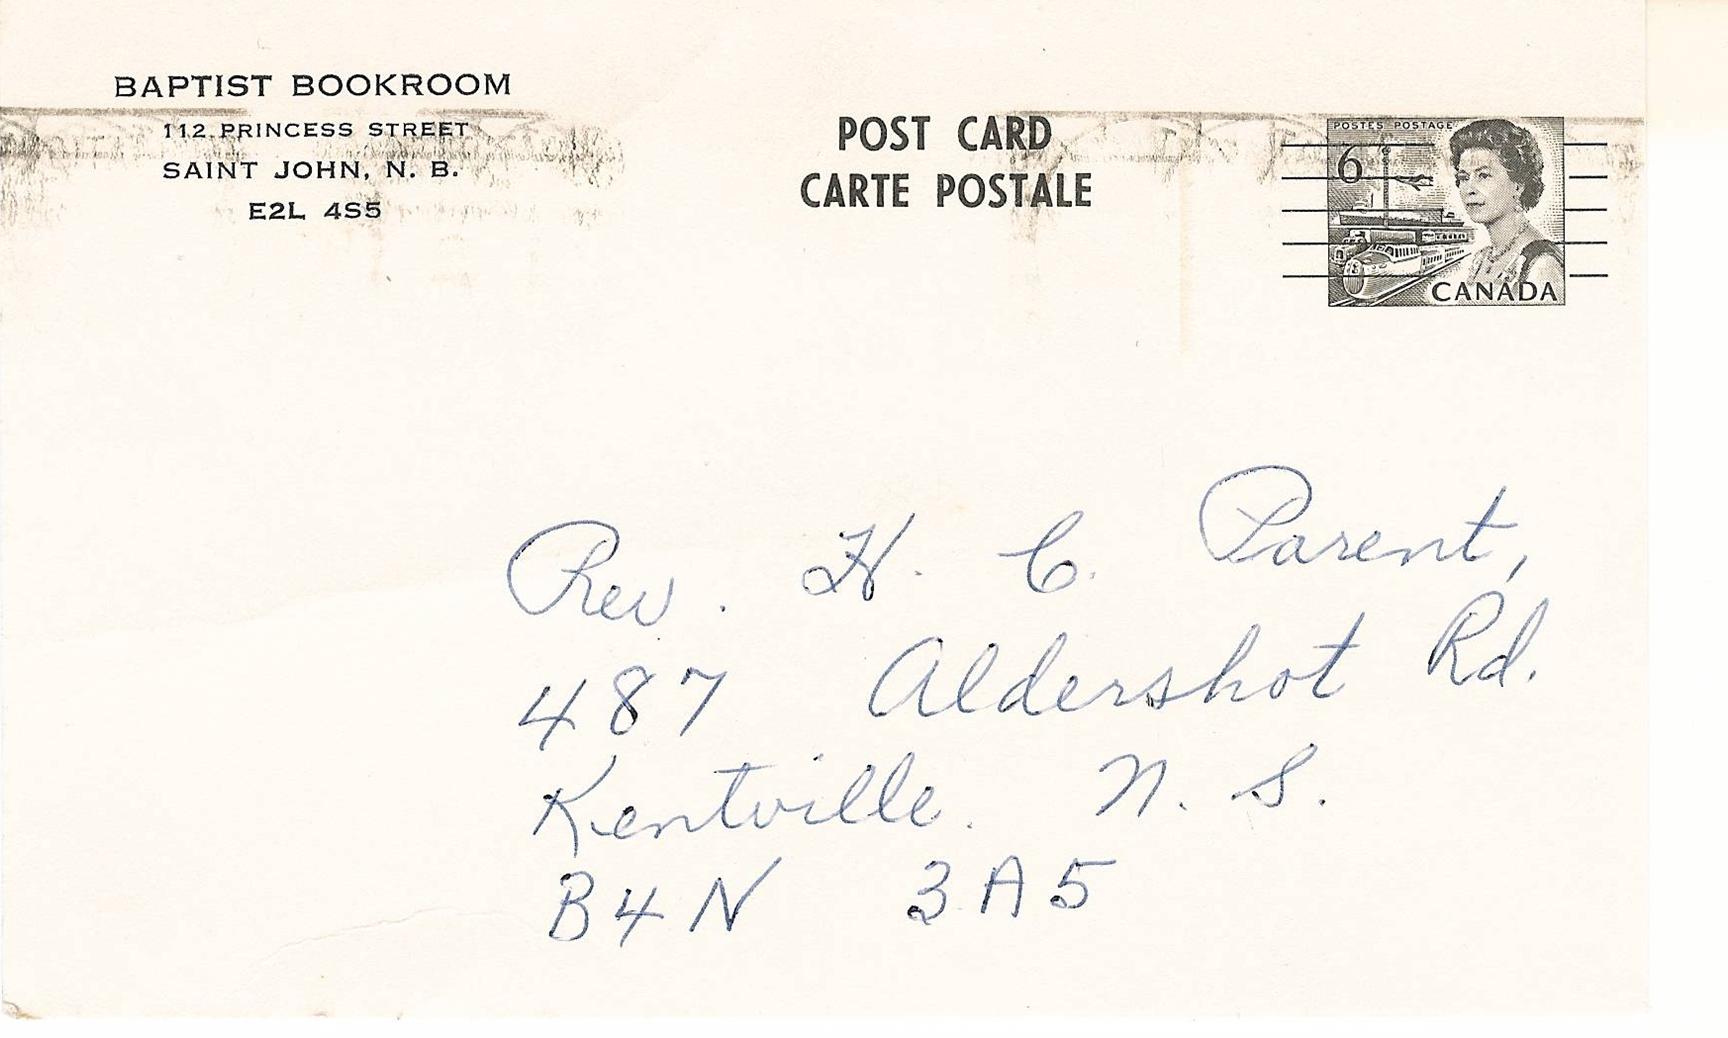 BAPTIST BOOKROOM
112 PRINCESS STREET
SAINT JOHN, N. B.
E2L 4S5
POST CARD
CARTE POSTALE
POSTES POSTAGE
6
CANADA
Rev. H. C. Parent,
487 Aldershot Rd.
Kentville. N. S.
B4N 3A5